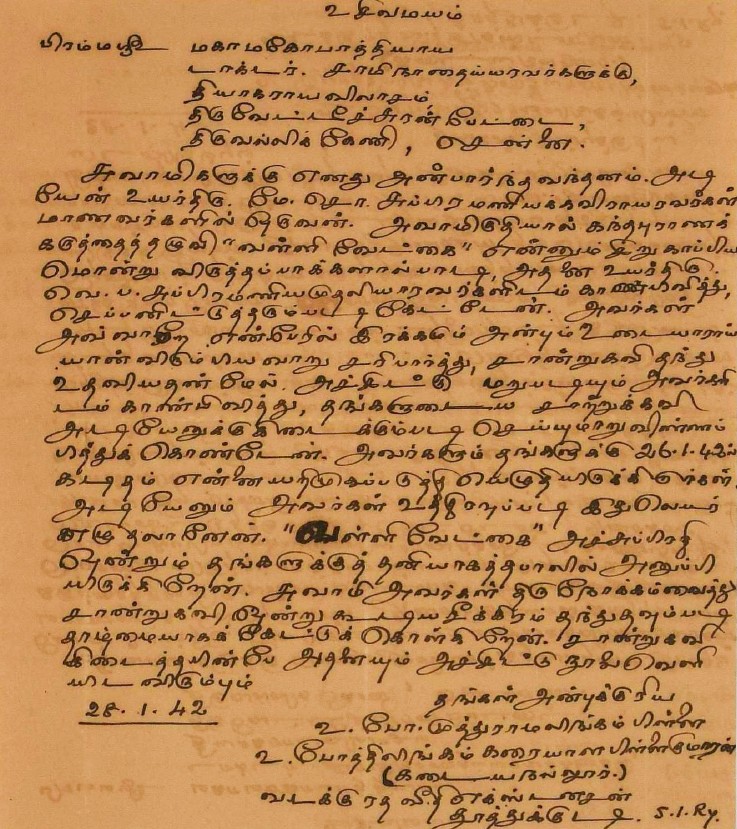 உ சிவமயம்
பிரம்மஸ்ரீ மகாமகோபாத்தியாய
டாக்டர். சாமிநாதைய்யரவர்களுக்கு,
தியாகராயவிலாசம்,
திருவேட்டீச்சுரன்பேட்டை,
திருவல்லிக்கேணி, சென்னை.
சுவாமிகளுக்கு எனது அன்பார்ந்தவந்தனம். அடி
யேன் உயர்திரு. மே. சொ. சுப்பிரமணியக்கவிராயரவர்கள்
மாணவர்களில் ஒருவன். அவாமிகுதியால் கந்தபுராணக்
கருத்தைத்தழுவி "வள்ளி வேட்கை" என்னும் சிறு காப்பிய
மொன்று விருத்தப்பாக்களாற்பாடி, அதனை உயர்திரு.
வெ. ப. சுப்பிரமணியமுதலியாரவர்களிடம் காண்பித்து,
செப்பனிட்டுத்தரும்படி கேட்டேன். அவர்கள்
அவ்வாறே என்பேரில் இரக்கமும் அன்பும் உடையாராய்
யான் விரும்பியவாறு சரிபார்த்து, சாற்றுகவி தந்து
உதவியதன் மேல். அச்சிட்டு மறுபடியும் அவர்களி
டம் காண்பிவித்து, தங்களுடைய சாற்றுக்கவி
அடியேனுக்கு கிடைக்கும்படி செய்யுமாறு விண்ணப்
பித்துக் கொண்டேன். அவர்களும் தங்களுக்கு 26.1.42ல்
கடிதம் என்னையறிமுகப்படுத்தி யெழுதியிருக்கிறார்கள்.
அடியேனும் அவர்கள் உத்தரவுப்படி இதுலெயர்
எழுதலானேன். "வள்ளி வேட்கை" அச்சுப்பிரதி
ஒன்றும் தங்களுக்குத் தனியாகத்தபாலில் அனுப்பி
யிருக்கிறேன். சுவாமி அவர்கள் திருநோக்கம்வைத்து
சாற்றுகவி ஒன்று கூடியசீக்கிரம் தந்துதவும்படி
தாழ்மையாகக் கேட்டுக் கொள்கிறேன். சாற்றுகவி
கிடைத்தபின்பே அதனையும் அச்சிட்டு நூல் வெளி
யிட விரும்பும்
தங்கள் அன்புக்குரிய
28.1.42
உ. போ. முத்துராமலிங்கம் பிள்ளை
உ. போத்திலிங்கம் கரையாளபிள்ளைகுமாரன்
(கடையநல்லூர்.)
வடக்கு ரதவீதி எக்ஸ்டன்சன்
தூத்துக்குடி. S.I.Ry.